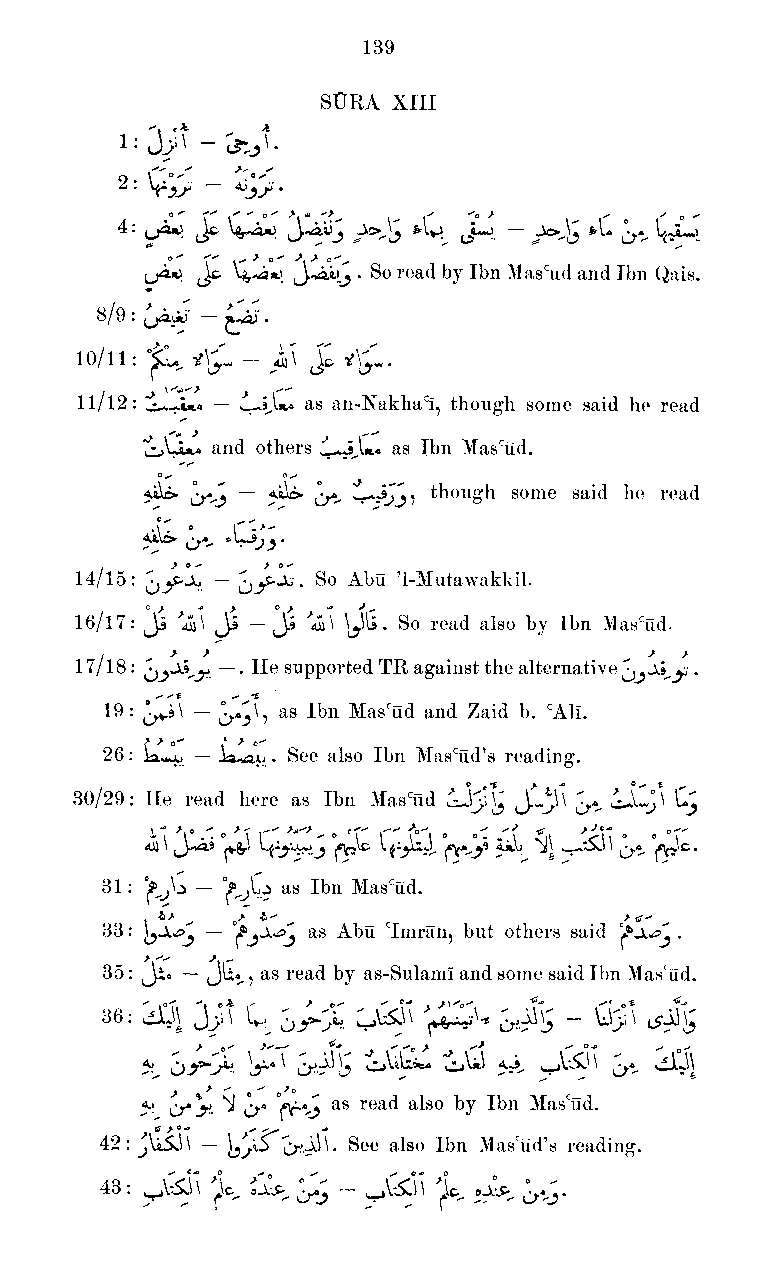 139
SŪRA XIII
1: أُنْزِلَ – أُوحِيَ.
2: تَرَوْنَهَا – تَرَوْنَهُ.
4: يُسْقَى بِمَاءٍ وَاحِدٍ وَنُفَضِّلُ بَعْضَهَا عَلَى بَعْضٍ – يَسْقِيهَا مِنْ مَاءٍ وَاحِدٍ
وَيُفَضَّلُ بَعْضُهَا عَلَى بَعْضٍ. So read by Ibn Masʿud and Ibn Qais.
8/9: تَغِيضُ – تَضَعُ.
10/11: سَوَاءٌ مِنْكُمْ – سَوَاءٌ عَلَى ٱللَّهِ.
11/12: مُعَقِّبَٰتٌ – مَعَاقِبُ as an-Nakhaʿī, though some said he read
مُعْقِبَاتٌ and others مَعَاقِيبُ as Ibn Masʿūd.
وَمِنْ خَلْفِهِ – وَرَقِيبٌ مِنْ خَلْفِهِ, though some said he read
وَرُقَبَاءُ مِنْ خَلْفِهِ.
14/15: يَدْعُونَ – تَدْعُونَ. So Abū ’l-Mutawakkil.
16/17: قُلِ ٱللَّهُ قُلْ – قَالُوا ٱللَّهُ قُلْ. So read also by Ibn Masʿūd.
17/18: يُوقِدُونَ –. He supported TR against the alternative تُوقِدُونَ.
19: أَفَمَنْ – أَوَمَنْ, as Ibn Masʿūd and Zaid b. ʿAlī.
26: يَبْسُطُ – يَبْصُطُ. See also Ibn Masʿūd’s reading.
30/29: He read here as Ibn Masʿūd وَمَا أَرْسَلْتُ مِنَ ٱلرُّسُلِ وَأَنْزَلْتُ
عَلَيْهِمْ مِنَ ٱلْكُتُبِ إِلَّا بِلُغَةِ قَوْمِهِمْ لِيَتْلُونَهَا عَلَيْهِمْ وَيُبَيِّنُونَهَا لَهُمْ فَضْلَ ٱللَّهِ.
31: دَارِهِمْ – دِيَارِهِمْ as Ibn Masʿūd.
33: وَصُدُّوا – وَصَدُّوهُمْ as Abū ʿImrān, but others said وَصَدَّهُمْ.
35: مَثَلُ – مِثَالُ, as read by as-Sulamī and some said Ibn Masʿūd.
36: وَٱلَّذِينَ ءَاتَيْنَٰهُمُ ٱلْكِتَابَ يَفْرَحُونَ بِمَا أُنْزِلَ إِلَيْكَ – وَٱلَّذِى أَنْزَلْنَا
إِلَيْكَ مِنَ ٱلْكِتَابِ فِيهِ لُغَاتٌ مُخْتَلِفَاتٌ وَٱلَّذِينَ آمَنُوا يَفْرَحُونَ بِهِ
وَمِنْهُمْ مَنْ لَا يُؤْمِنُ بِهِ as read also by Ibn Masʿūd.
42: ٱلْكُفَّارُ – ٱلَّذِينَ كَفَرُوا. See also Ibn Masʿūd’s reading.
43: وَمَنْ عِنْدَهُ عِلْمُ ٱلْكِتَابِ – وَمِنْ عِنْدِهِ عِلْمُ ٱلْكِتَابِ.